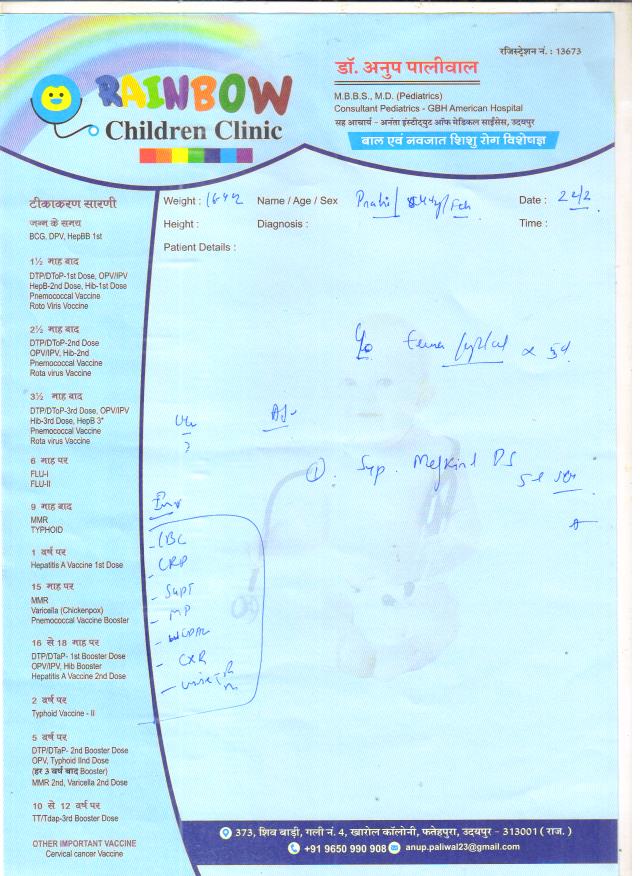 रजिस्ट्रेशन नं. : 13673
RAINBOW
Children Clinic
डॉ. अनुप पालीवाल
M.B.B.S., M.D. (Pediatrics)
Consultant Pediatrics - GBH American Hospital
सह आचार्य - अनंता इंस्टीट्युट ऑफ मेडिकल साइंसेस, उदयपुर
बाल एवं नवजात शिशु रोग विशेषज्ञ
Weight : Name / Age / Sex Date :
Height : Diagnosis : Time :
Patient Details :
x 5d
① . Syp. DS
Inv
- CBC
- CRP
- SGPT
- MP
- CXR
टीकाकरण सारणी
जन्म के समय
BCG, DPV, HepBB 1st
1½ माह बाद
DTP/DToP-1st Dose, OPV/IPV
HepB-2nd Dose, Hib-1st Dose
Pnemococcal Vaccine
Roto Viris Voccine
2½ माह बाद
DTP/DToP-2nd Dose
OPV/IPV, Hib-2nd
Pnemococcal Vaccine
Rota virus Vaccine
3½ माह बाद
DTP/DToP-3rd Dose, OPV/IPV
Hib-3rd Dose, HepB 3*
Pnemococcal Vaccine
Rota virus Vaccine
6 माह पर
FLU-I
FLU-II
9 माह बाद
MMR
TYPHOID
1 वर्ष पर
Hepatitis A Vaccine 1st Dose
15 माह पर
MMR
Varicella (Chickenpox)
Pnemococcal Vaccine Booster
16 से 18 माह पर
DTP/DTaP- 1st Booster Dose
OPV/IPV, Hib Booster
Hepatitis A Vaccine 2nd Dose
2 वर्ष पर
Typhoid Vaccine - II
5 वर्ष पर
DTP/DTaP- 2nd Booster Dose
OPV, Typhoid IInd Dose
(हर 3 वर्ष बाद Booster)
MMR 2nd, Varicella 2nd Dose
10 से 12 वर्ष पर
TT/Tdap-3rd Booster Dose
OTHER IMPORTANT VACCINE
Cervical cancer Vaccine
373, शिव बाड़ी, गली नं. 4, खारोल कॉलोनी, फतेहपुरा, उदयपुर - 313001 ( राज. )
+91 9650 990 908 anup.paliwal23@gmail.com